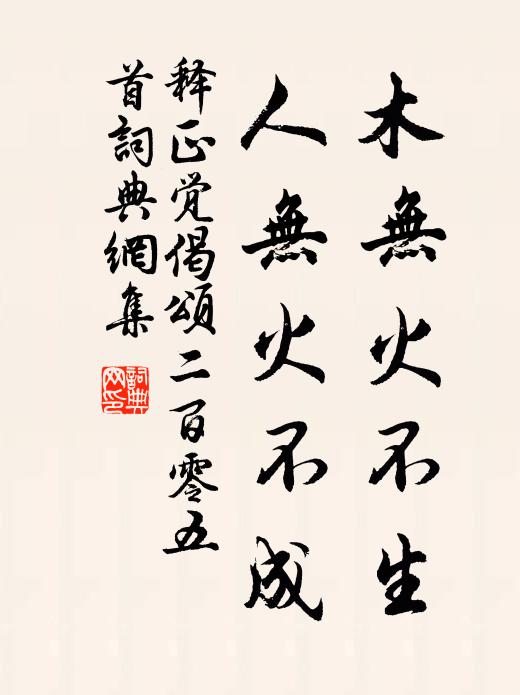 木無火不生
人無火不成
释正覚偈頌二百零五
首詞典網集
詞典
网印